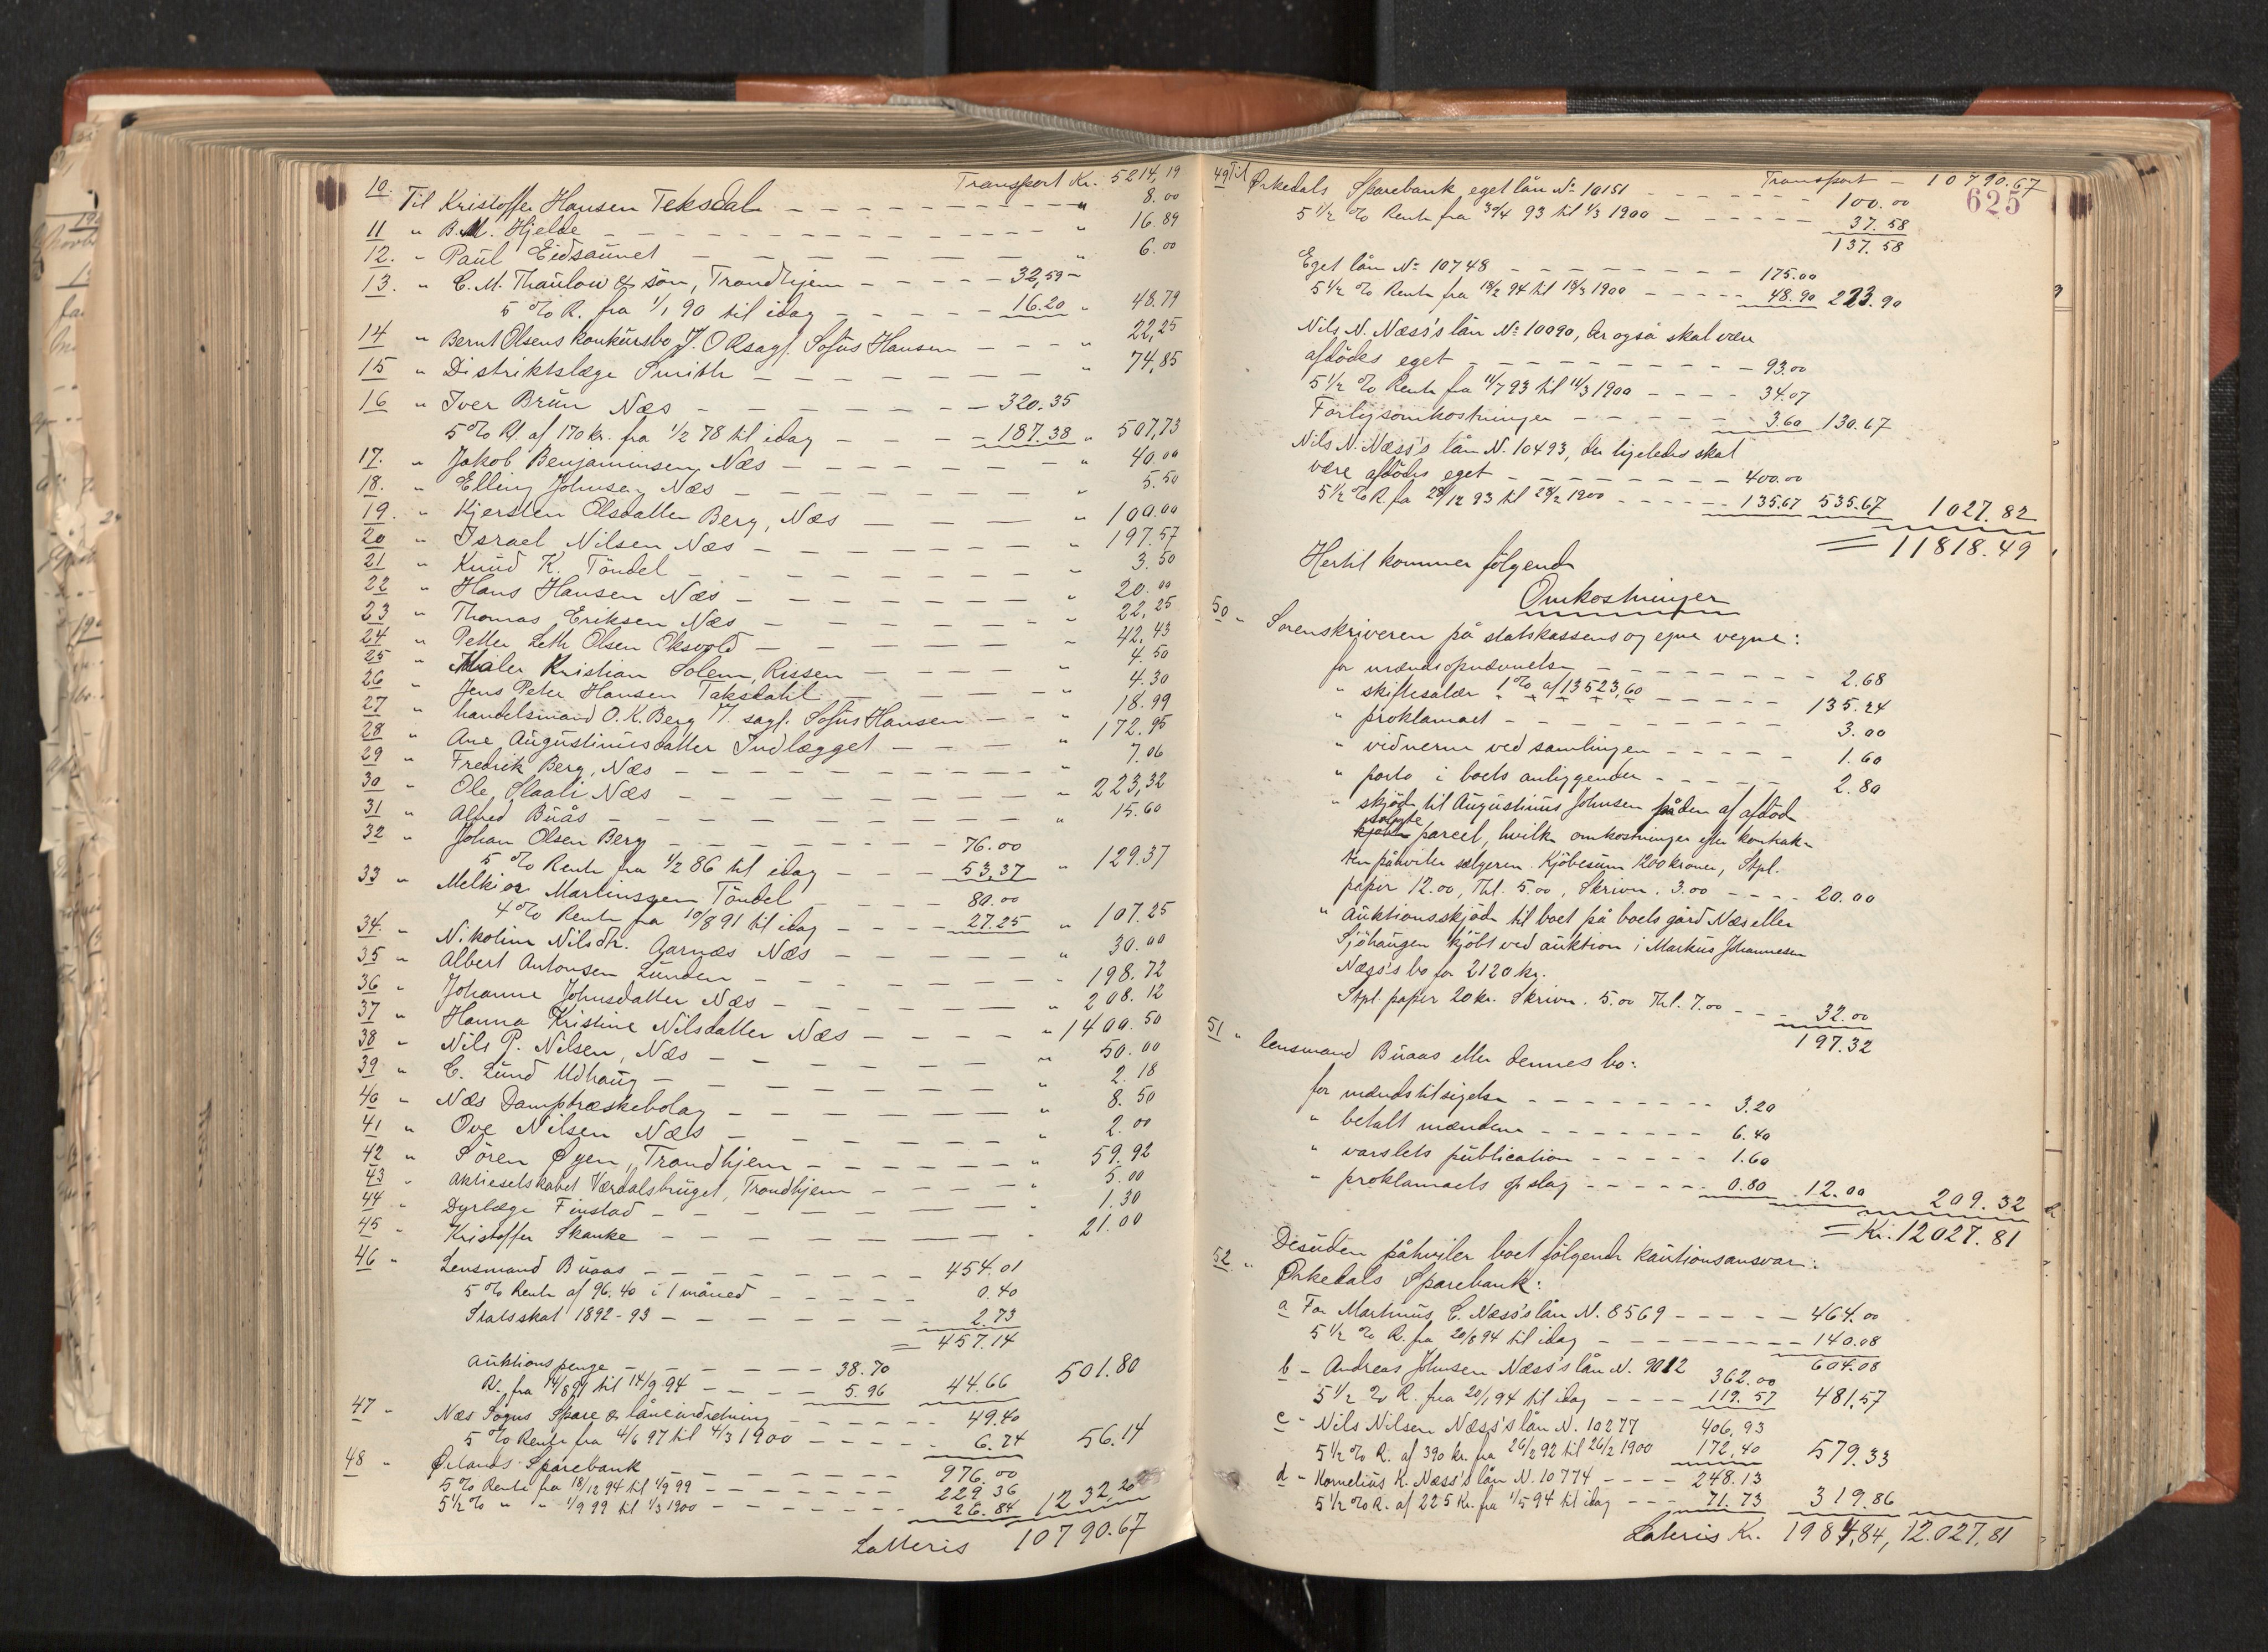 Transport Kr. 5214,19
10. Til Kristoffer Hansen Teksdal — — — " 8.00
11 " B. M. Hjelde — — — " 16.89
12. " Paul Eidsaunet — — — " 6.00
13. " C. M. Thaulow & sön, Trondhjem — — — 32,59
5 % R. fra 1/1 90 til idag — — — 16.20 " 48.79
14 " Bernt Olsens konkursbo v. O R sagf. Sofus Hansen — — — " 22,25
15 " Distriktslæge Smith — — — " 74,85
16 " Iver Brun Næs — — — 320.35
5 % R. af 170 kr. fra 1/2 78 til idag — — — 187.38 " 507,73
17. " Jakob Benjaminsen, Næs — — — " 40.00
18. " Elling Johnsen Næs — — — " 5.50
19. " Kjersten Olsdatter Berg, Næs — — — " 100.00
20 " Israel Nilsen Næs — — — " 197.57
21 " Knud K. Töndel — — — " 3.50
22 " Hans Hansen Næs — — — " 20.00
23 " Thomas Eriksen Næs — — — " 22,25
24 " Petter Leth Olsen Oksvold — — — " 42.43
25 " Maler Kristian Solem, Rissen — — — " 4.50
26 " Jens Peter Hansen Taksdahl — — — " 4.30
27 " handelsmand O. K. Berg v. sagf. Sofus Hansen — — " 18.99
28 " Ane Augustinusdatter Indlægget — — — " 172.95
29 " Fredrik Berg, Næs — — — " 7.06
30 " Ole Slaali Næs — — — " 223,32
31 " Alfred Buås — — — " 15.60
32 " Johan Olsen Berg — — — 76.00
5 % Rente fra 1/2 86 til idag — — — 53,37 " 129.37
33 " Melkior Martinssen Töndel — — — 80.00
4 % Rente fra 10/8 91 til idag — — — 27.25 " 107.25
34. " Nikoline Nilsdtr. Aarnæs Næs — — — " 30.00
35 " Albert Antonsen Lunden — — — 198.72
36 " Johanne Johnsdatter Næs — — — " 208.12
37 " Hanna Kristine Nilsdatter Næs — — — " 1400.50
38 " Nils P. Nilsen, Næs — — — " 50.00
39 " C. Lund Udhaug — — — " 2.18
40 " Næs Damptræskebolag — — — " 8.50
41 " Ove Nilsen Næs — — — " 2.00
42 " Sören Øyen, Trondhjem — — — " 59.92
43 " Aktieselskabet Værdalsbruget, Trondhjem — — — " 5.00
44 " Dyrlæge Finstad — — — " 1.30
45 " Kristoffer Skanke — — — " 21.00
46 " Lensmand Buaas — — — 454.01
5 % Rente af 96.40 i 1 måned — — — 0.40
Statsskat 1892-93 — — — 2.73
= 457.14
Auktionspenge — — — 38.70
R. fra 14/8 91 til 14/9 94 — — — 5.96 44.66 501.80
47 " Næs Sogns Spare & låneindretning — — — 49.40
5 % Rente fra 4/6 97 til 4/3 1900 — — — 6.74 56.14
48 " Ørlands Sparebank — — — 976.00
5 % Rente fra 18/12 94 til 1/9 99 — — — 229 36
5 1/2 % " " 1/9 99 til 1/3 1900 — — — 26.84 1232.20
Latteris 10790.67
Transport — 10790.67
625
49 Til Örkedals Sparebank eget lån No 10151 — — — 100.00
5 1/2 % Rente fra 30/4 93 til 1/3 1900 — — — 37.58
137.58
Eget lån No 10748 — — — 175.00
5 1/2 % Rente fra 18/2 94 til 18/3 1900 — — — 48.90 223.90
Nils N. Næss's lån No 10090, der også skal være
afdödes eget — — — 93.00
5 1/2 % Rente fra 11/7 93 til 11/3 1900 — — — 34.07
Forligsomkostninger — — — 3.60 130.67
Nils N. Næss's lån N. 10493, der ligeledes skal
være afdödes eget — — — 400.00
5 1/2 % R. fra 28/12 93 til 28/2 1900 — — — 135.67 535.67 1027.82
= 11818.49
Hertil kommer fölgende
Omkostninger
50 " Sorenskriveren på statskassens og egne vegne:
for mændsopnævnelse — — — 2.68
" skiftesalær 1 % af 13523,60 — — — 135.24
" proklamaet — — — 3.00
" vidnerne ved samlingen — — — 1.60
" porto i boets anliggender — — — 2.80
" skjöde til Augustinus Johnsen på den af afdöd
solgte
kjöbte parcel, hvilke omkostninger efter kontrak-
ten påhviler sælgeren. Kjöbesum 1200 kroner, Stpl.
papir 12.00, Thl. 5.00, Skrivn. 3.00 — — — 20.00
" Auktionsskjöde til boet på boets gård Næs eller
Sjöhaugen kjöbt ved auktion i Markus Johannesen
Næss's bo for 2120 kr.
Stpl. papir 20 kr. Skrivn. 5.00 Thl. 7.00 — — — 32.00
197.32
51 " lensmand Buaas eller dennes bo:
for mændstilsigelse — — — 3.20
" betalt mændene — — — 6.40
" varslets publication — — — 1.60
" proklamaets opslag — — — 0.80 12.00 209.32
= Kr. 12027.81
Desuden påhviler boet fölgende kautionsansvar:
52 " Örkedals Sparebank:
a For Martinus C. Næss's lån N. 8569 — — — 464.00
5 1/2 % R. fra 20/8 94 til idag — — — 140.08
604.08
b — Andreas Johnsen Næss's lån N. 9012 362.00
5 1/2 % R. fra 20/1 94 til idag — — — 119.57 481,57
c — Nils Nilsen Næss's lån N. 10277 406,93
5 1/2 % R. af 390 kr. fra 26/2 92 til 26/2 1900 172,40 579.33
d — Kornelius K. Næss's lån N. 10774 — — — 248.13
5 1/2 % R. af 225 Kr. fra 1/5 94 til idag — — — 71.73 319.86
Lateris Kr. 1984,84, 12.027,81